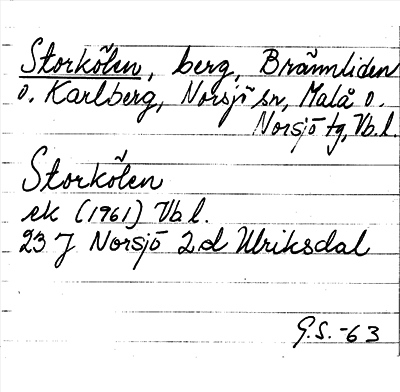 Storkölen, berg, Brännliden
o. Karlberg, Norsjö sn, Malå o.
Norsjö tg, Vb.l.
Storkölen
ek (1961) Vb l.
23 J Norsjö 2d Ulriksdal
G.S. -63